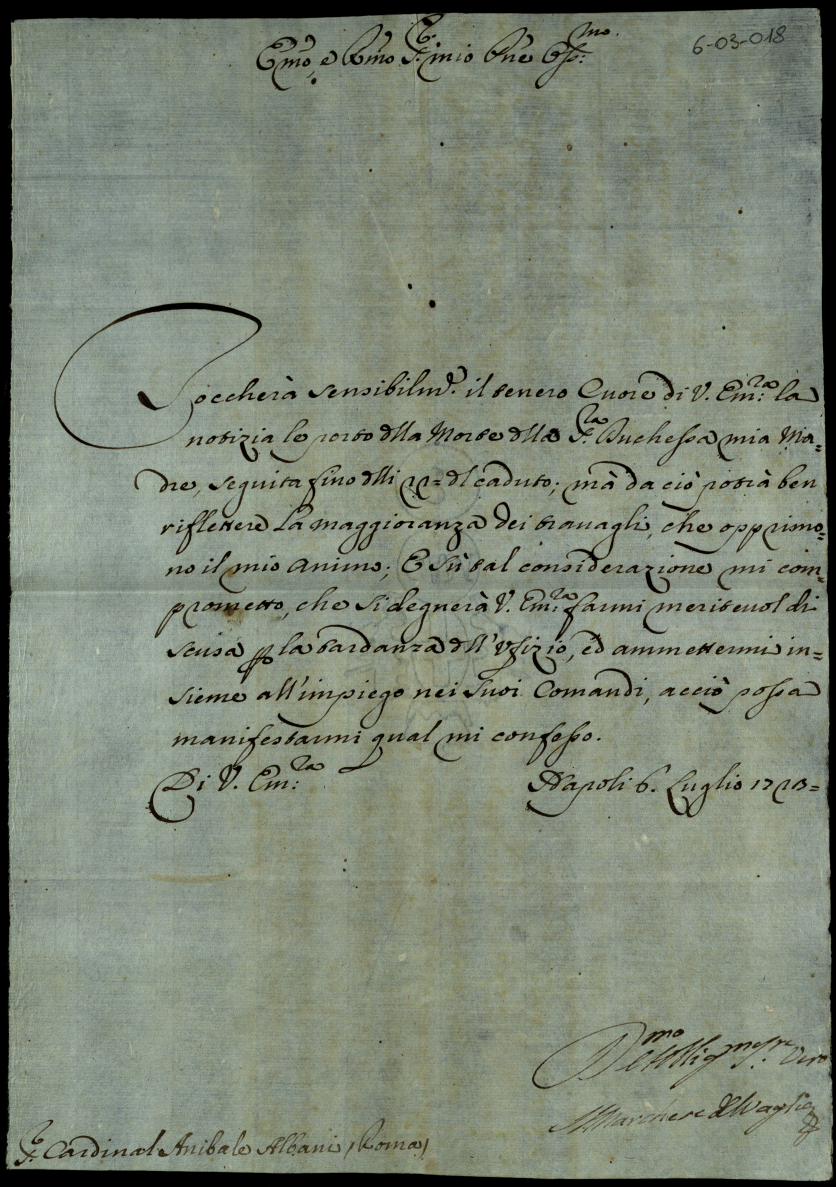 6-03-018
Em̃o, e Rmo Sr. mio Pne Ossmo.
Toccherà sensibilmte. il tenero Cuore di V. Emza: la
notizia le porto dlla Morte dlla Sra. Duchessa mia Ma=
dre, seguita fino dlli 22= dl caduto; mà da ciò potrà ben
riflettere la maggioranza dei travagli, che opprimo=
no il mio animo; E sù tal considerazione mi com=
prometto, che si degnerà V. Emza: farmi meritevol di
scusa p la tardanza dll'Ufizio, ed ammettermi in=
sieme all'impiego nei suoi Comandi, acciò possa
manifestarmi qual mi confesso.
Di V. Emza:
Napoli 6. Luglio 1723=
Il Marchese
Sr. Cardinal Anibale Albani (Roma)